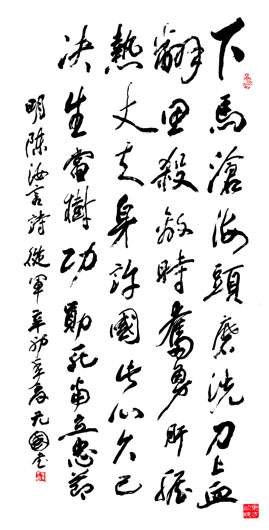 下馬滄海頭磨洗刀上血
翻思殺敵時奮勇肝膽
熱丈夫身許國此心久已
决生當樹功勛死當立忠節
明陳汝言詩從軍辛卯年春元國書